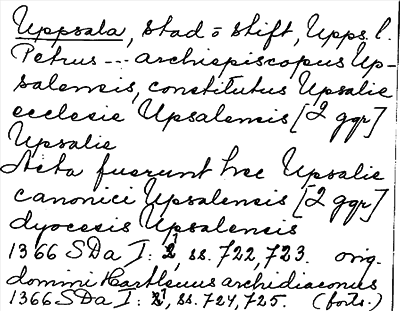 Uppsala, stad o stift, Upps. l.
Petrus --- archiepiscopus Up-
salensis, constitutus Upsalie
ecclesie Upsalensis [2 ggr]
Upsalie
Acta fuerunt hec Upsalie
canonici Upsalensis [2 ggr]
dyocesis Upsalensis
1366 SDa I: 2, ss. 722, 723. orig.
domini Kartleuus archidiaconus
1366 SDa I: 2, ss. 724, 725. (forts.)